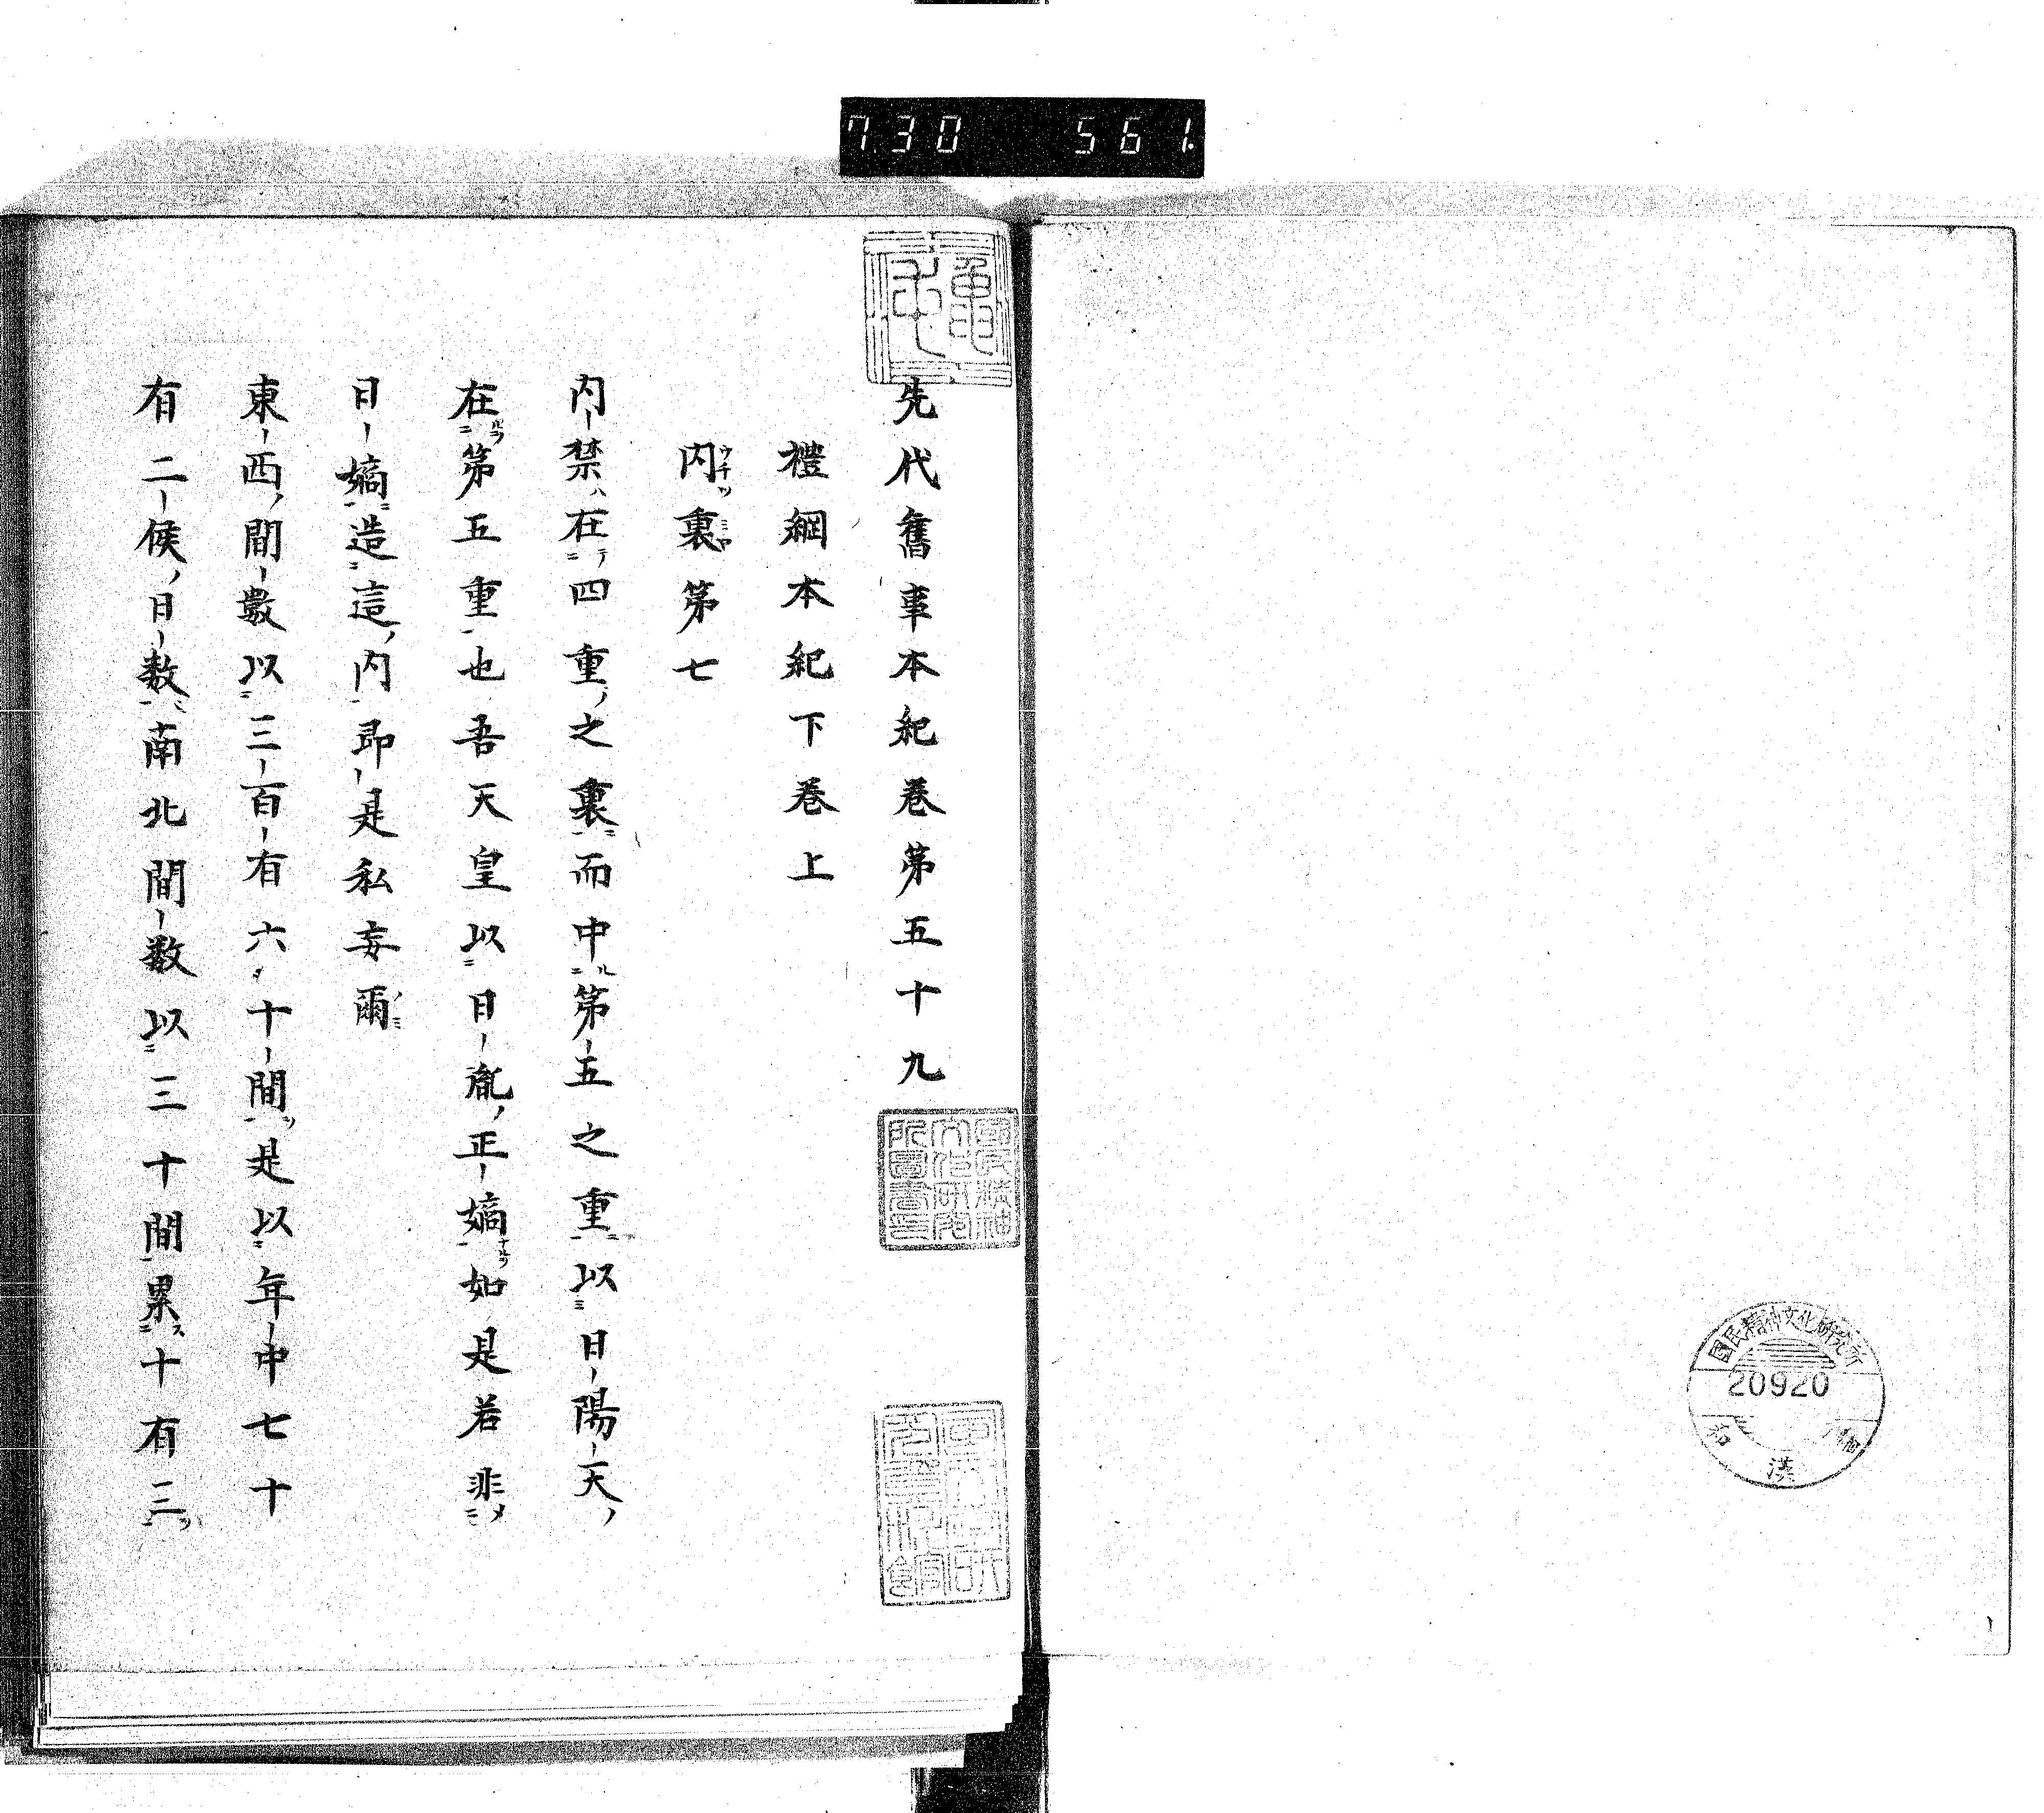 730 561.
先代舊事本紀巻第五十九
禮綱本紀下巻上
内裏第七
内禁在四重之裏而中第五之重以日陽天
在第五重也吾天皇以日胤正嫡如是若非
日嫡造這内即是私妄爾
東西間數以三百有六十間是以年中七十
有二候日数南北間数以三十間累十有三
國民精神文化研究所圖書印
國民精神文化研究所
20920
和
漢